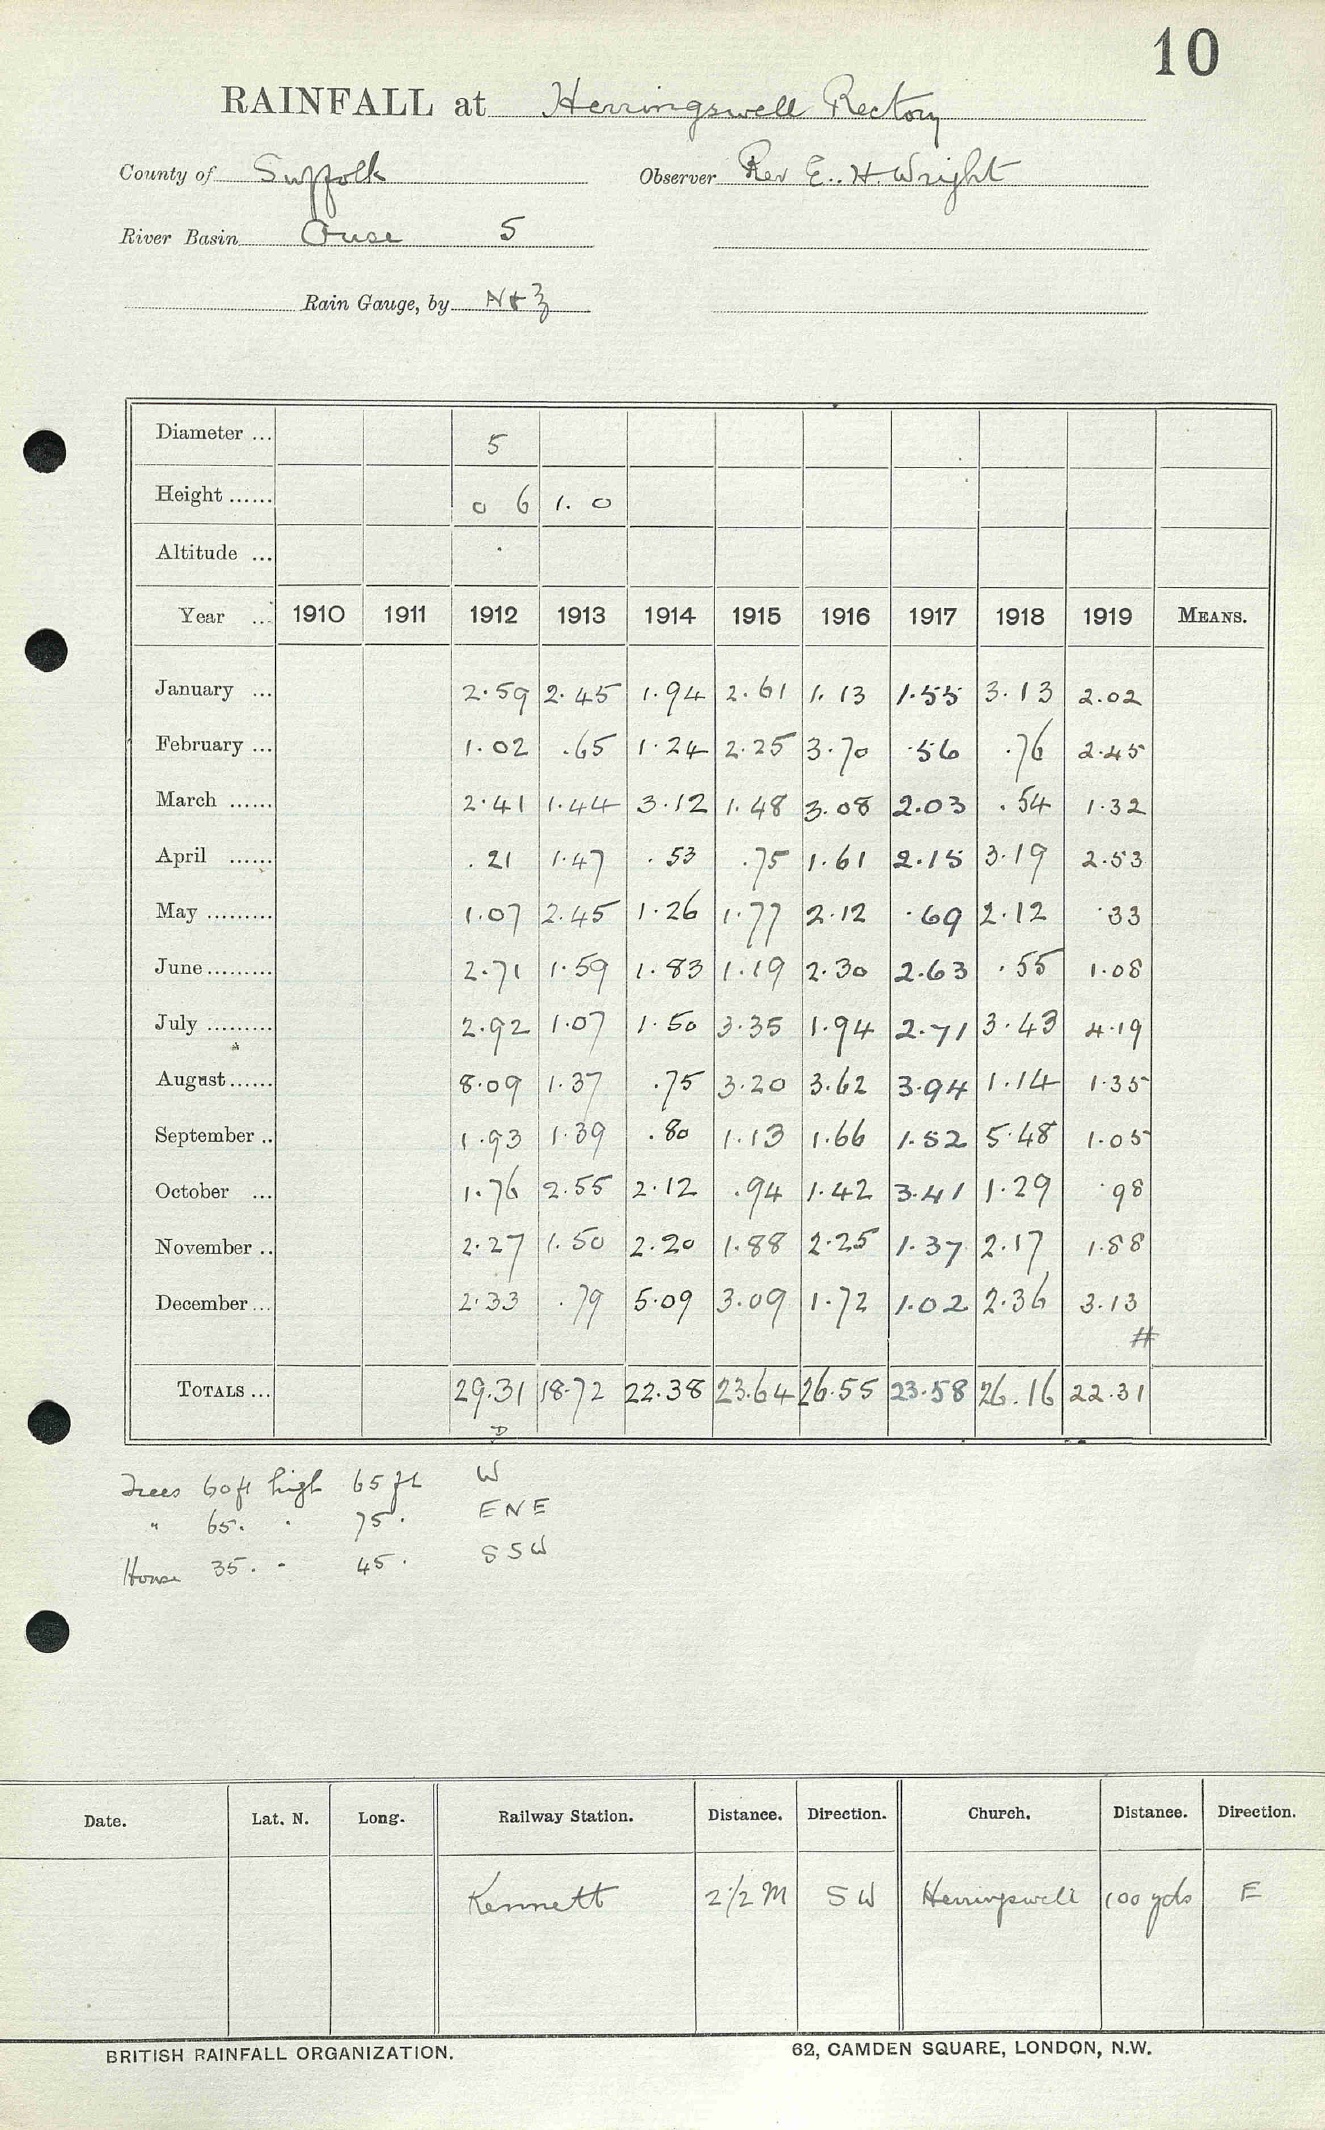 10
RAINFALL at Herringswell Rectory
County of Suffolk Observer Rev E. H. Wright
River Basin Ouse 5
Rain Gauge, by N & Z
Diameter ... 5
Height ...... 0 6 1. 0
Altitude ...
Year ... 1910 1911 1912 1913 1914 1915 1916 1917 1918 1919 MEANS.
January ... 2.59 2.45 1.94 2.61 1.13 1.55 3.13 2.02
February ... 1.02 .65 1.24 2.25 3.70 .56 .76 2.45
March ...... 2.41 1.44 3.12 1.48 3.08 2.03 .54 1.32
April ...... .21 1.47 .53 .75 1.61 2.15 3.19 2.53
May ......... 1.07 2.45 1.26 1.77 2.12 .69 2.12 .33
June ......... 2.71 1.59 1.83 1.19 2.30 2.63 .55 1.08
July ......... 2.92 1.07 1.50 3.35 1.94 2.71 3.43 4.19
August ...... 8.09 1.37 .75 3.20 3.62 3.94 1.14 1.35
September .. 1.93 1.39 .80 1.13 1.66 1.52 5.48 1.05
October ... 1.76 2.55 2.12 .94 1.42 3.41 1.29 .98
November .. 2.27 1.50 2.20 1.88 2.25 1.37 2.17 1.88
December ... 2.33 .79 5.09 3.09 1.72 1.02 2.36 3.13
#
TOTALS ... 29.31 18.72 22.38 23.64 26.55 23.58 26.16 22.31
D
Trees 60 ft high 65 ft W
" 65. " 75. ENE
House 35. " 45. SSW
Date. Lat. N. Long. Railway Station. Distance. Direction. Church. Distance. Direction.
Kennett 2 1/2 M SW Herringswell 100 yds E
BRITISH RAINFALL ORGANIZATION. 62, CAMDEN SQUARE, LONDON, N.W.